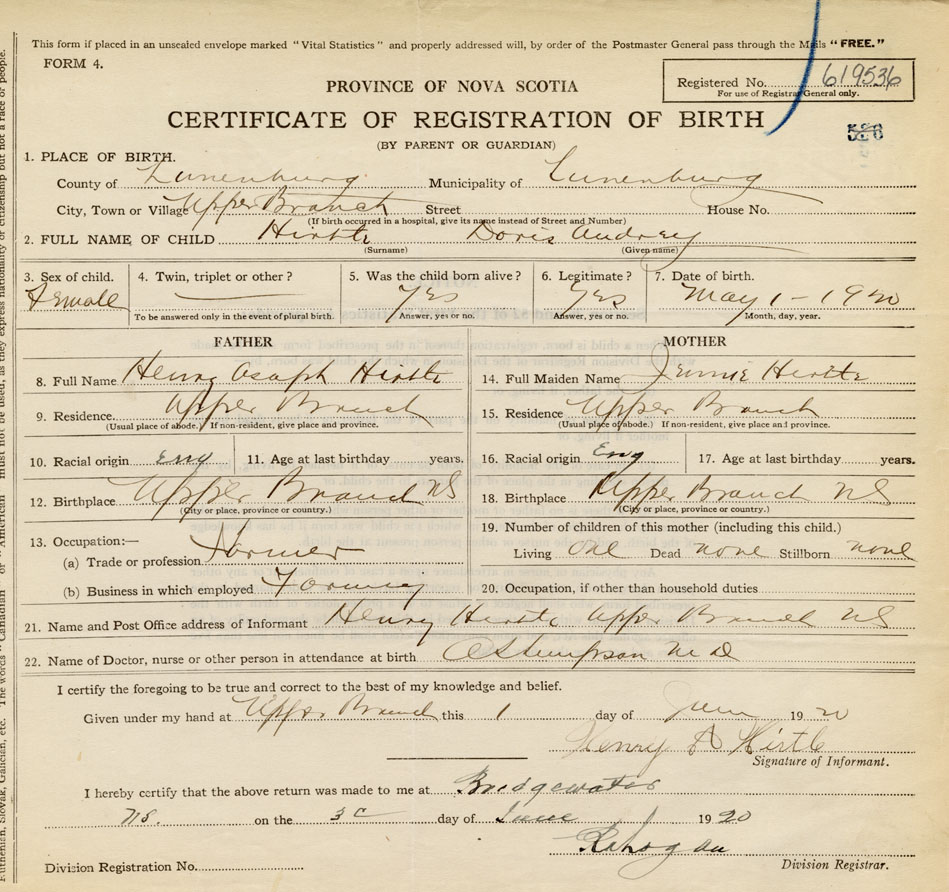 This form if placed in an unsealed envelope marked "Vital Statistics" and properly addressed will, by order of the Postmaster General pass through the Mails "FREE."
FORM 4.
Registered No. 619536
For use of Registrar General only.
PROVINCE OF NOVA SCOTIA
CERTIFICATE OF REGISTRATION OF BIRTH
(BY PARENT OR GUARDIAN)
1. PLACE OF BIRTH.
County of Lunenburg Municipality of Lunenburg
City, Town or Village Upper Branch Street House No.
(If birth occurred in a hospital, give its name instead of Street and Number)
2. FULL NAME OF CHILD Hirtle Doris Audrey
(Surname) (Given name)
3. Sex of child. 4. Twin, triplet or other? 5. Was the child born alive? 6. Legitimate? 7. Date of birth.
Female Yes Yes May 1 - 1920
To be answered only in the event of plural birth. Answer, yes or no. Answer, yes or no. Month, day, year.
FATHER
8. Full Name Henry Asaph Hirtle
9. Residence Upper Branch
(Usual place of abode.) If non-resident, give place and province.
10. Racial origin Eng 11. Age at last birthday years.
12. Birthplace Upper Branch NS
(City or place, province or country.)
13. Occupation:—
(a) Trade or profession Farmer
(b) Business in which employed Farming
MOTHER
14. Full Maiden Name Jennie Hirtle
15. Residence Upper Branch
(Usual place of abode.) If non-resident, give place and province.
16. Racial origin Eng 17. Age at last birthday years.
18. Birthplace Upper Branch NS
(City or place, province or country.)
19. Number of children of this mother (including this child.)
Living one Dead none Stillborn none
20. Occupation, if other than household duties
21. Name and Post Office address of Informant Henry Hirtle Upper Branch NS
22. Name of Doctor, nurse or other person in attendance at birth MD
I certify the foregoing to be true and correct to the best of my knowledge and belief.
Given under my hand at Upper Branch this 1 day of June 1920
Henry A Hirtle
Signature of Informant.
I hereby certify that the above return was made to me at Bridgewater
NS. on the day of June 1920
Division Registration No. Division Registrar.